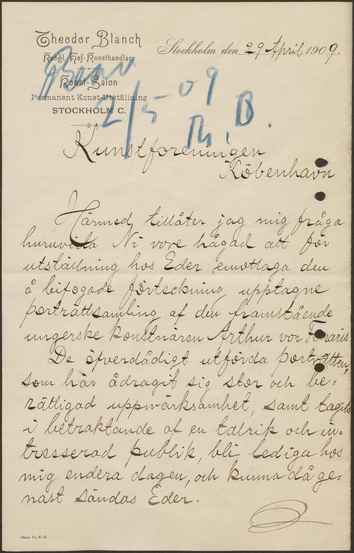 Theodor Blanch
Kungl. Hof-Konsthandlare
Konst-Salon
Permanent Konst-Utställning
STOCKHOLM C.
Stockholm den 29 April 1909.
Besv.
2/5 09
Th. B.
Kunstforeningen
Köbenhavn
Härmed tillåter jag mig fråga
huruvida Ni vore hågad att för
utställning hos Eder emottaga den
å bifogade förteckning upptagne
porträttsamling af den framstående
ungerske konstnären Arthur von Ferraris.
De öfverdådigt utförda porträtten,
som här ådragit sig stor och be-
rättigad uppmärksamhet, samt tagits
i betraktande af en talrik och in-
tresserad publik, bli lediga hos
mig endera dagen, och kunna då ge-
nast sändas Eder.